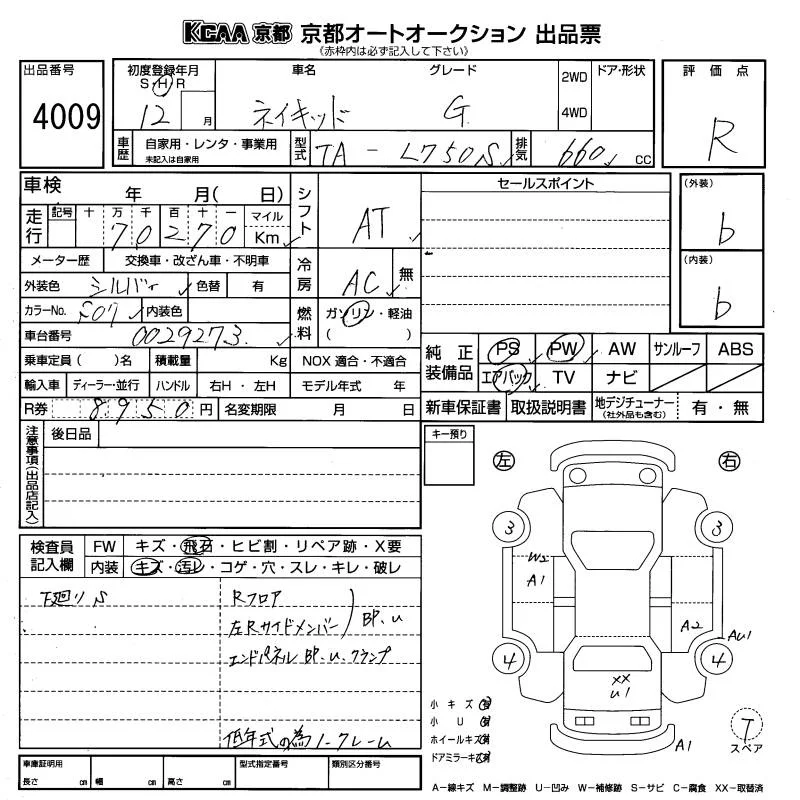 KCAA 京都 京都オートオークション 出品票
《赤枠内は必ず記入して下さい》
出品番号
4009
初度登録年月
S H R
12 月
車名
ネイキッド
グレード
G
2WD
4WD
ドア・形状
評価点
R
車歴
自家用・レンタ・事業用
未記入は自家用
型式
TA - L750S
排気
660 CC
車検 年 月( 日)
走行
記号 十 万 千 百 十 一
70270
マイル
Km
シフト
AT
メーター歴 交換車・改ざん車・不明車
外装色 シルバー 色替 有
冷房
AC
無
カラーNo. S07 内装色
燃料
ガソリン・軽油
( )
車台番号 0029273
乗車定員( )名 積載量 Kg NOX 適合・不適合
輸入車 ディーラー・並行 ハンドル 右H・左H モデル年式 年
R券 8950 円 名変期限 月 日
セールスポイント
(外装)
b
(内装)
b
純正装備品
PS PW AW サンルーフ ABS
エアバック TV ナビ
新車保証書 取扱説明書 地デジチューナー 有・無
(社外品も含む)
注意事項(出品店記入)
後日品
キー預り
左 右
検査員記入欄
FW キズ・飛石・ヒビ割・リペア跡・X要
内装 キズ・汚レ・コゲ・穴・スレ・キレ・破レ
下廻り S
Rフロア
左Rサイドメンバー BP.U
エンドパネル BP.U.クランプ
低年式の為ノークレーム
3 3
W2
A1
A2
AU1
4 4
XX
U1
A1
小キズ
小U
ホイールキズ
ドアミラーキズ
T
スペア
車庫証明用
長さ cm 幅 cm 高さ cm
型式指定番号
類別区分番号
A-線キズ M-調整跡 U-凹み W-補修跡 S-サビ C-腐食 XX-取替済